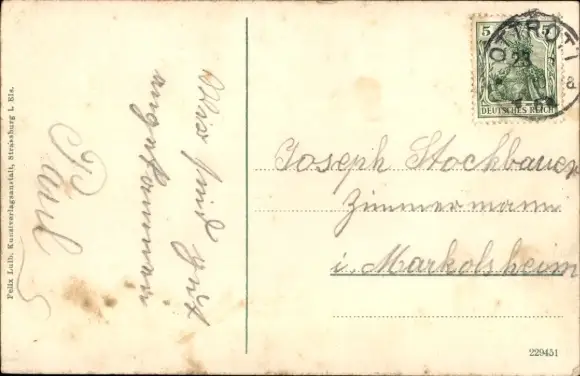 Wir sind gut
angekommen
Paul
Felix Luib, Kunstverlagsanstalt, Strassburg i. Els.
5 5
DEUTSCHES REICH
OTTROTT
23
a
Joseph Stockbauer
Zimmermann
i. Markolsheim
229451